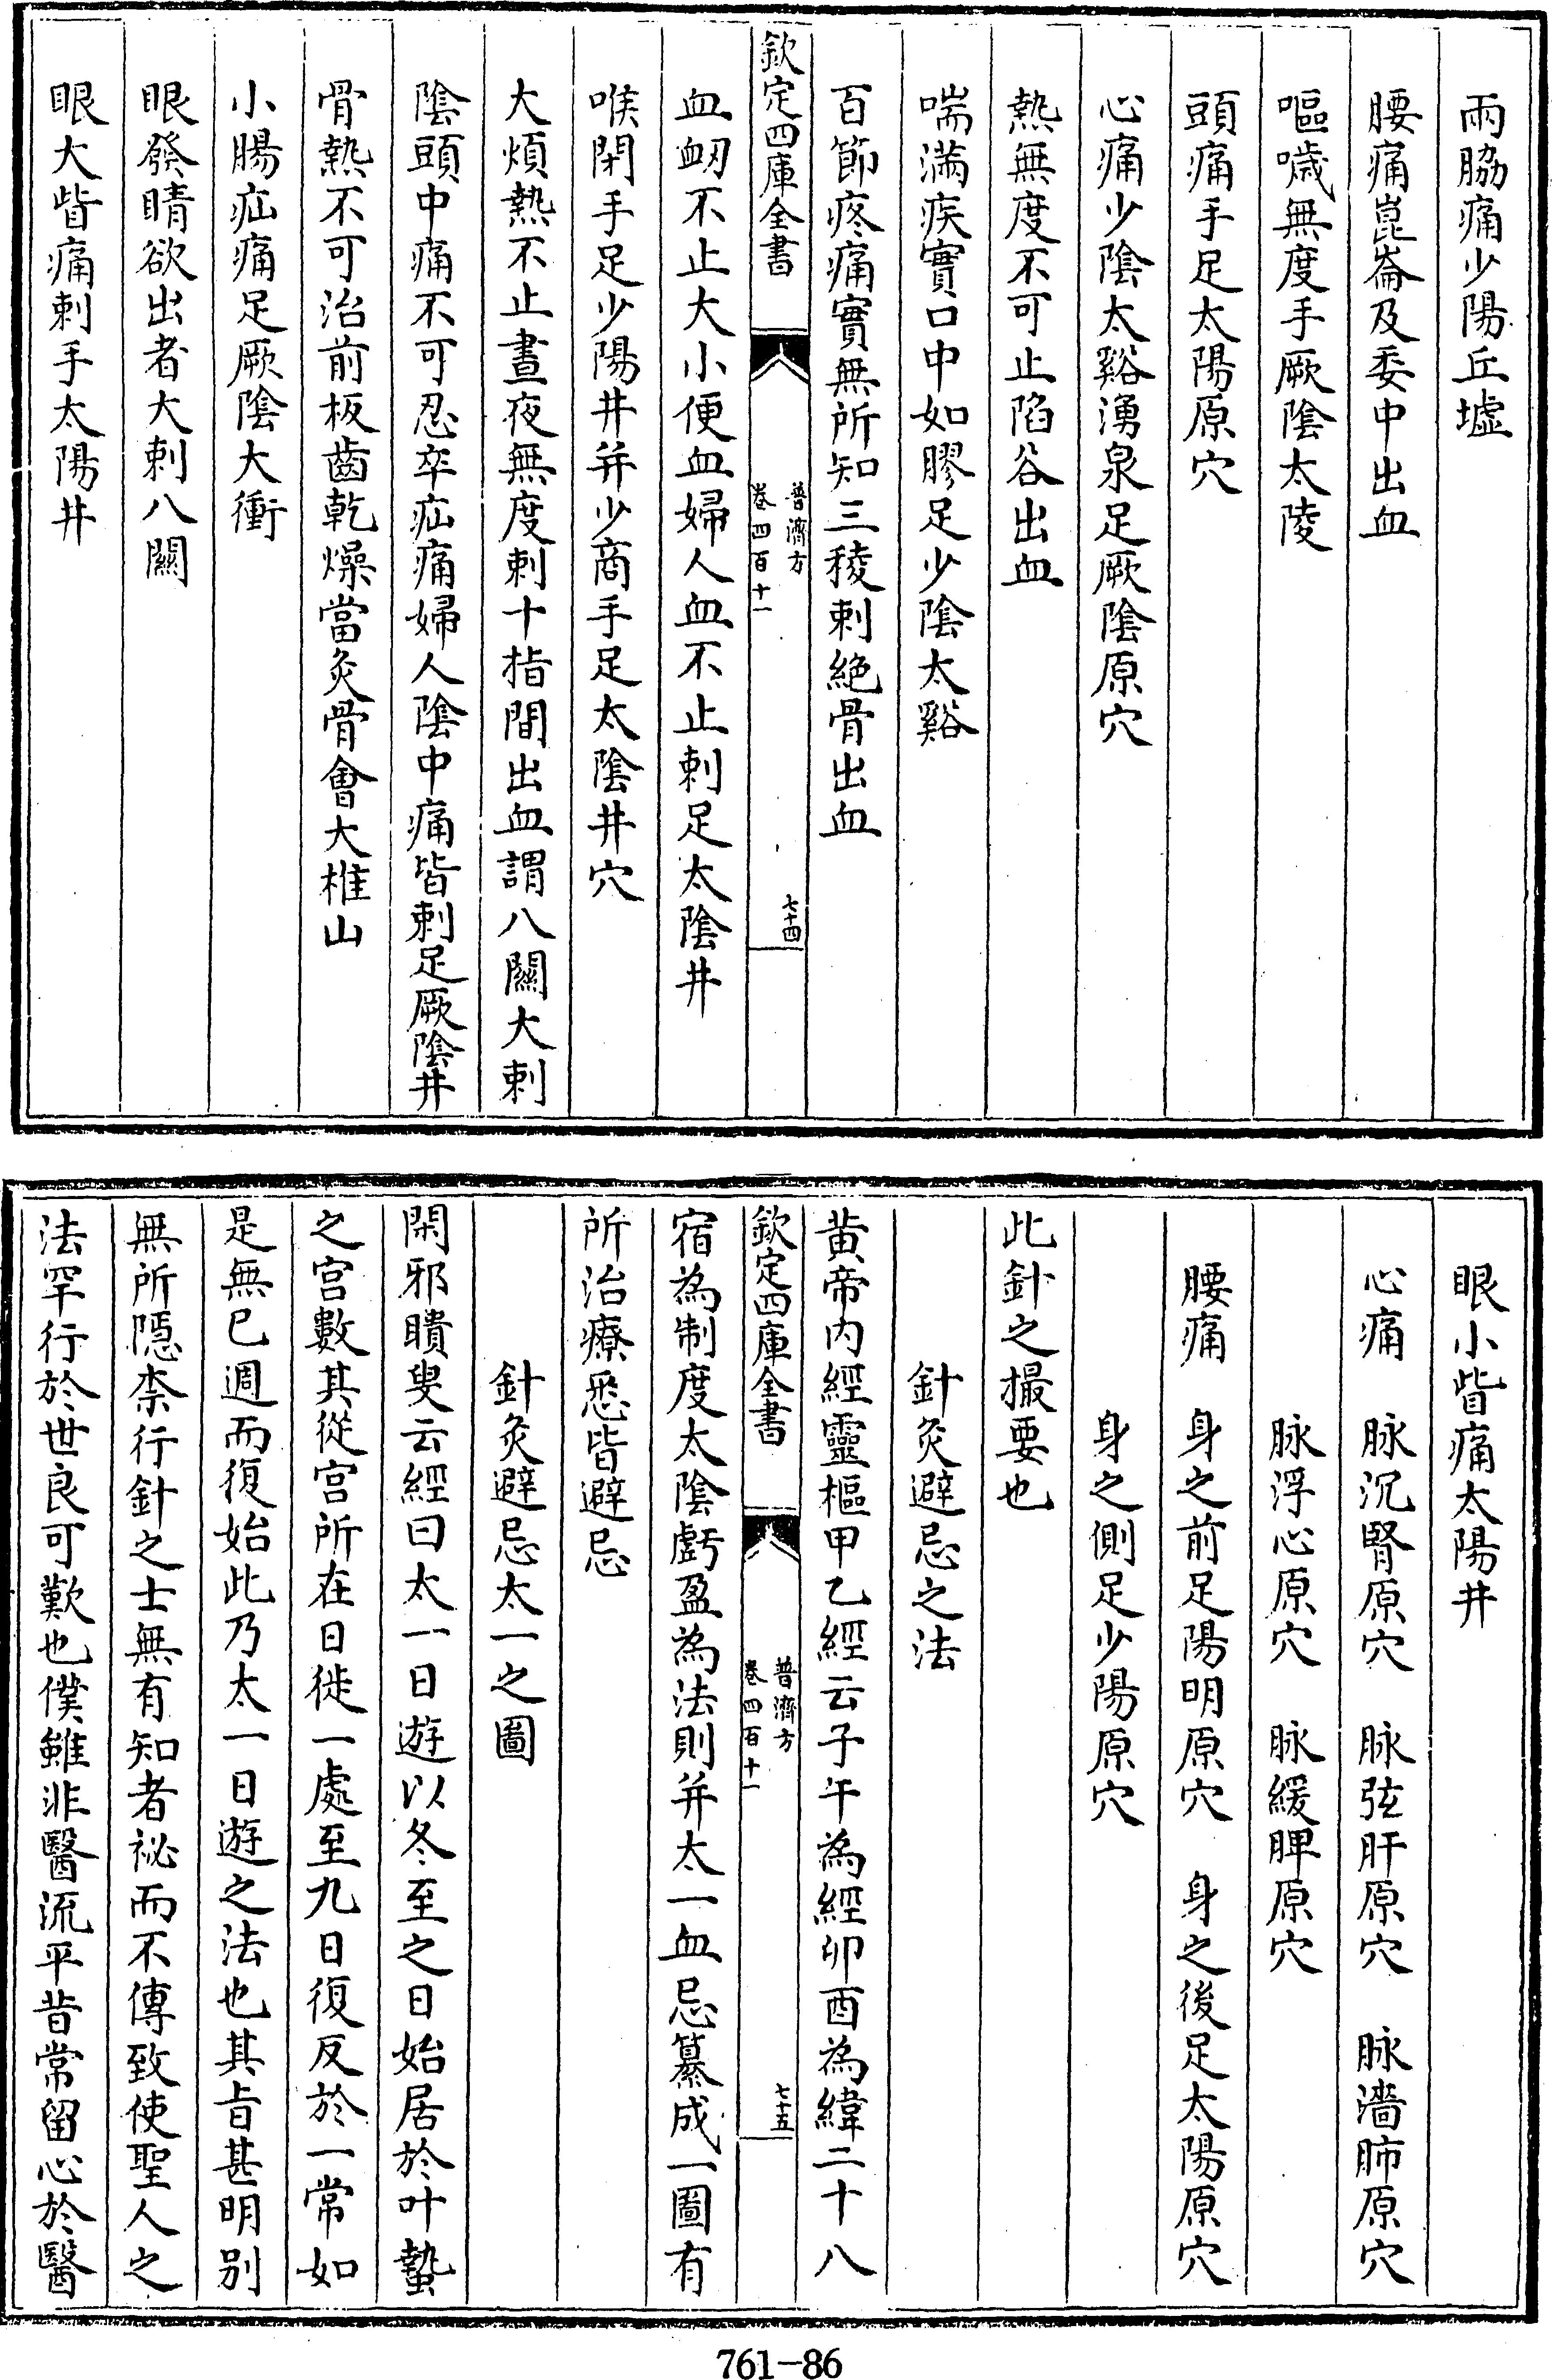 兩脇痛少陽丘墟
腰痛崑崙及委中出血
嘔噦無度手厥陰太陵
頭痛手足太陽原穴
心痛少陰太谿湧泉足厥陰原穴
熱無度不可止陷谷出血
喘滿疾實口中如膠足少陰太谿
百節疼痛實無所知三稜刺絶骨出血
欽定四庫全書
普濟方
卷四百十一
七十四
血衂不止大小便血婦人血不止刺足太陰井
喉閉手足少陽井并少商手足太陰井穴
大煩熱不止晝夜無度刺十指間出血謂八關大刺
陰頭中痛不可忍卒疝痛婦人陰中痛皆刺足厥陰井
骨熱不可治前板齒乾燥當灸骨會大椎山
小腸疝痛足厥陰大衝
眼發睛欲出者大刺八關
眼大眥痛刺手太陽井
眼小眥痛太陽井
心痛 脉沉腎原穴 脉弦肝原穴 脉濇肺原穴
脉浮心原穴 脉緩脾原穴
腰痛 身之前足陽明原穴 身之後足太陽原穴
身之側足少陽原穴
此針之撮要也
針灸避忌之法
黄帝内經靈樞甲乙經云子午為經卯酉為緯二十八
欽定四庫全書
普濟方
卷四百十一
七十五
宿為制度太陰虧盈為法則并太一血忌纂成一圖有
所治療悉皆避忌
針灸避忌太一之圖
閑邪瞶叟云經曰太一日遊以冬至之日始居於叶蟄
之宫數其從宫所在日徙一處至九日復反於一常如
是無已週而復始此乃太一日遊之法也其旨甚明别
無所隱柰行針之士無有知者祕而不傳致使聖人之
法罕行於世良可歎也僕雖非醫流平昔常留心於醫
761-86